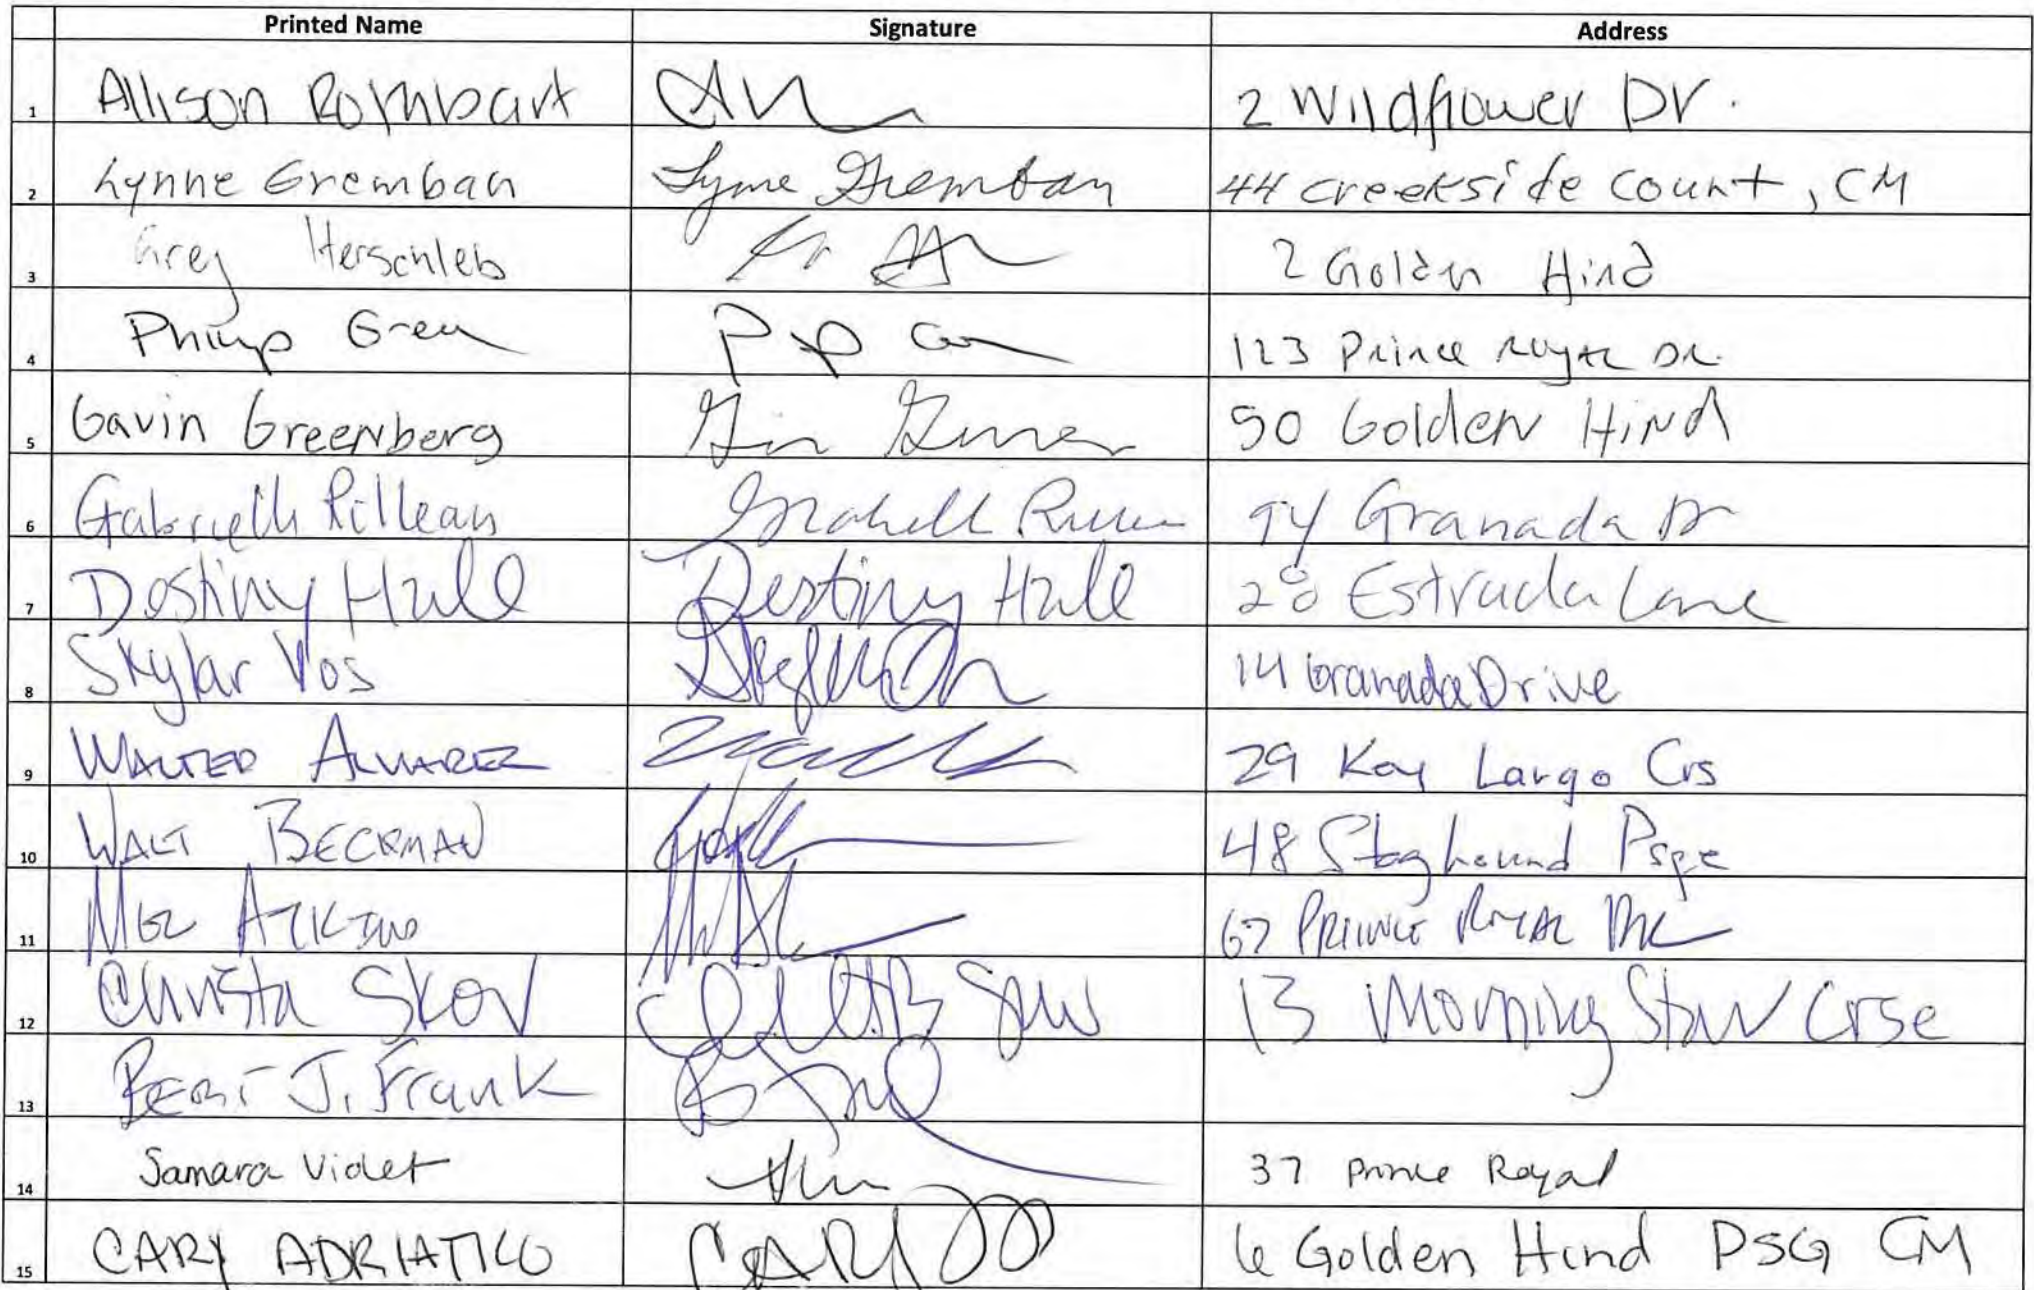 Printed Name Signature Address
1 Allison Rothbart 2 Wildflower Dr.
2 Lynne Gremban Lynne Gremban 44 creekside count, CM
3 Greg Herschleb 2 Golden Hind
4 Philip Green 123 Prince Royal Dr.
5 Gavin Greenberg 50 Golden Hind
6 94 Granada Dr
7 Destiny Hall Destiny Hall 28 Estrada Lane
8 Skylar Vos 14 Granada Drive
9 WALTER ALVAREZ 29 Key Largo Crs
10 WALT BECKMAN 48 Staghound Psge
11 67 Prince Royal
12 Christa Skov 13 Morning Star Crse
13 J. Frank
14 Samara Violet 37 Prince Royal
15 CARY ADRIATICO 6 Golden Hind PSG CM